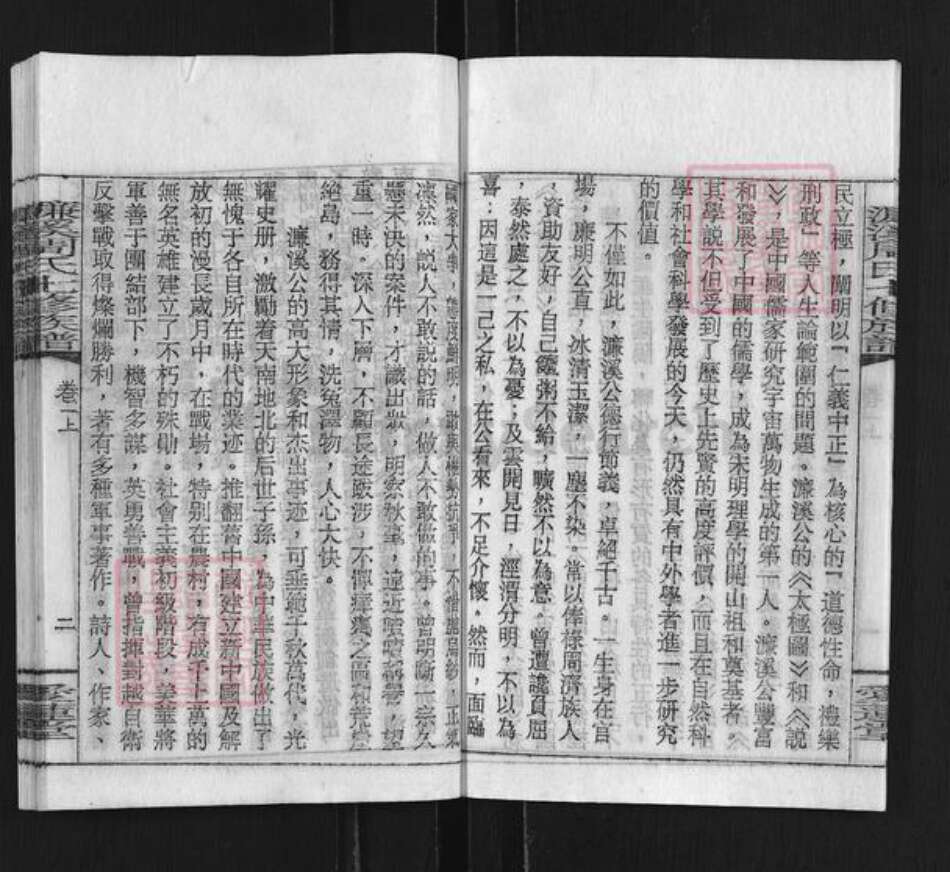 民立極，闡明以「仁義中正」為核心的「道德性命，禮樂
刑政」等人生論範圍的問題。濂溪公的《太極圖》和《說
》，是中國儒家研究宇宙萬物生成的第一人。濂溪公豐富
和發展了中國的儒學，成為宋明理學的開山祖和奠基者。
其學說不但受到了歷史上先賢的高度評價，而且在自然科
學和社會科學發展的今天，仍然具有中外學者進一步研究
的價值。
不僅如此，濂溪公德行節義，卓絕千古。一生身在官
場，廉明公直，冰清玉潔，一塵不染。常以俸祿周濟族人
，資助友好，自己饘粥不給，曠然不以為意。曾遭讒員屈
，泰然處之，不以為憂；及雲開見日，涇渭分明，不以為
喜：因這是一己之私，在公看來，不足介懷。然而，面臨
國家大事，態度鮮明，敢與權勢抗爭，不
凛然，説人不敢説的話，做人不敢做的事。曾明斷一宗久
懸未決的案件，才識出眾，明察秋毫，遠近嘖嘖稱譽，望
重一時。深入下層，不顧長途跋涉，不憚瘴癘之區和荒崖
絕島，務得其情，洗冤澤物，人心大快。
濂溪公的高大形象和杰出事迹，可垂範千秋萬代，光
耀史册，激勵着天南地北的后世子孫，為中華民族做出了
無愧于各自所在時代的業迹。推翻舊中國建立新中國及解
放初的漫長歲月中，在戰場，特别在農村，有成千上萬的
無名英雄建立了不朽的殊勛。社會主義初級階段，美華將
軍善于團結部下，機智多謀，英勇善戰，曾指揮對越自衛
反擊戰取得燦爛勝利，著有多種軍事著作。詩人、作家、
濂溪周氏七修族譜
卷一上
二
愛蓮堂